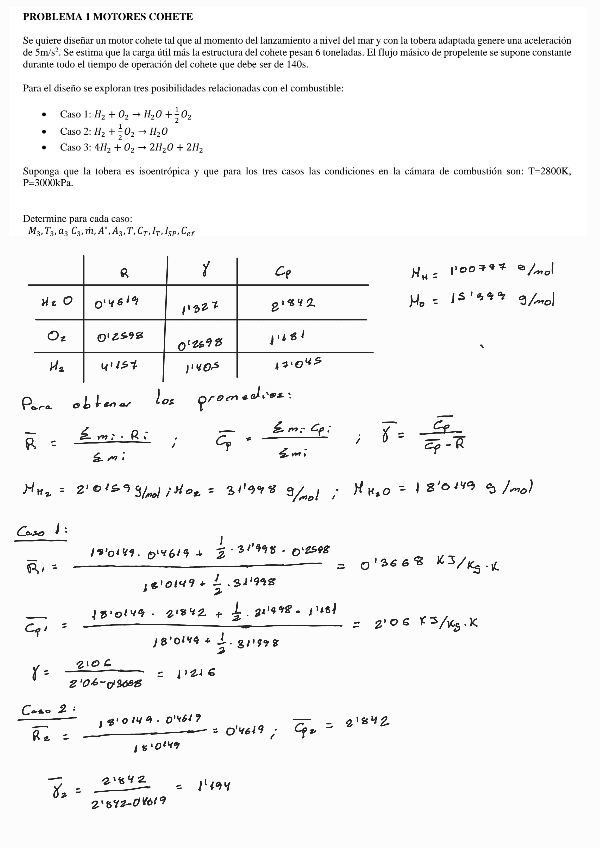 PROBLEMA 1 MOTORES COHETE
Se quiere diseñar un motor cohete tal que al momento del lanzamiento a nivel del mar y con la tobera adaptada genere una aceleración
de 5m/s². Se estima que la carga útil más la estructura del cohete pesan 6 toneladas. El flujo másico de propelente se supone constante
durante todo el tiempo de operación del cohete que debe ser de 140s.
Para el diseño se exploran tres posibilidades relacionadas con el combustible:
• Caso 1: H₂ + O₂ → H₂O + ½O₂
• Caso 2: H₂ + ½O₂ → H₂O
• Caso 3: 4H₂ + O₂ → 2H₂O + 2H₂
Suponga que la tobera es isoentrópica y que para los tres casos las condiciones en la cámara de combustión son: T=2800K,
P=3000kPa.
Determine para cada caso:
M₃, T₃, a₃ C₃, ṁ, A*, A₃, T, C_T, I_T, I_SP, C_ef
R γ Cp
H₂O 0'4619 1'327 2'842
O₂ 0'2598 0'2598 1'181
H₂ 4'157 1'405 17'045
M_H = 1'00797 g/mol
M_O = 15'999 g/mol
Para obtener los promedios:
R̄ = Σ mi · Ri / Σ mi ; C̄p = Σ mi · Cpi / Σ mi ; γ̄ = C̄p / (C̄p - R̄)
M_H₂ = 2'0159 g/mol ; M_O₂ = 31'998 g/mol ; M_H₂O = 18'0149 g/mol
Caso 1:
R̄₁ = (18'0149 · 0'4619 + ½ · 31'998 · 0'2598) / (18'0149 + ½ · 31'998) = 0'3668 KJ/Kg·K
C̄p₁ = (18'0149 · 2'842 + ½ · 31'998 · 1'181) / (18'0149 + ½ · 31'998) = 2'06 KJ/Kg·K
γ = 2'06 / (2'06-0'3668) = 1'216
Caso 2:
R̄₂ = 18'0149 · 0'4619 / 18'0149 = 0'4619 ; C̄p₂ = 2'842
γ̄₂ = 2'842 / (2'842-0'4619) = 1'194